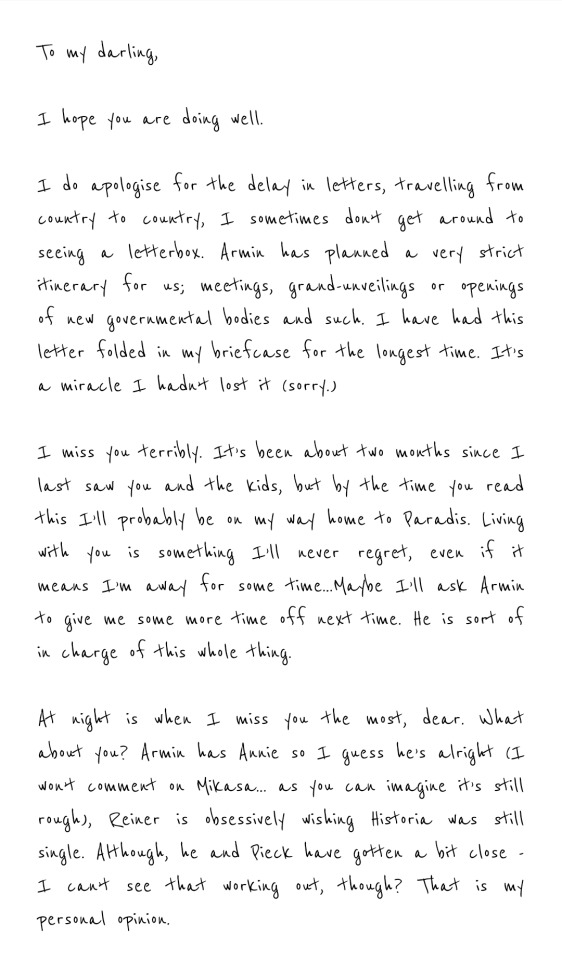 To my darling,
I hope you are doing well.
I do apologise for the delay in letters, travelling from
country to country, I sometimes don't get around to
seeing a letterbox. Armin has planned a very strict
itinerary for us; meetings, grand-unveilings or openings
of new governmental bodies and such. I have had this
letter folded in my briefcase for the longest time. It's
a miracle I hadn't lost it (sorry.)
I miss you terribly. It's been about two months since I
last saw you and the kids, but by the time you read
this I'll probably be on my way home to Paradis. Living
with you is something I'll never regret, even if it
means I'm away for some time...Maybe I'll ask Armin
to give me some more time off next time. He is sort of
in charge of this whole thing.
At night is when I miss you the most, dear. What
about you? Armin has Annie so I guess he's alright (I
won't comment on Mikasa... as you can imagine it's still
rough), Reiner is obsessively wishing Historia was still
single. Although, he and Pieck have gotten a bit close -
I can't see that working out, though? That is my
personal opinion.